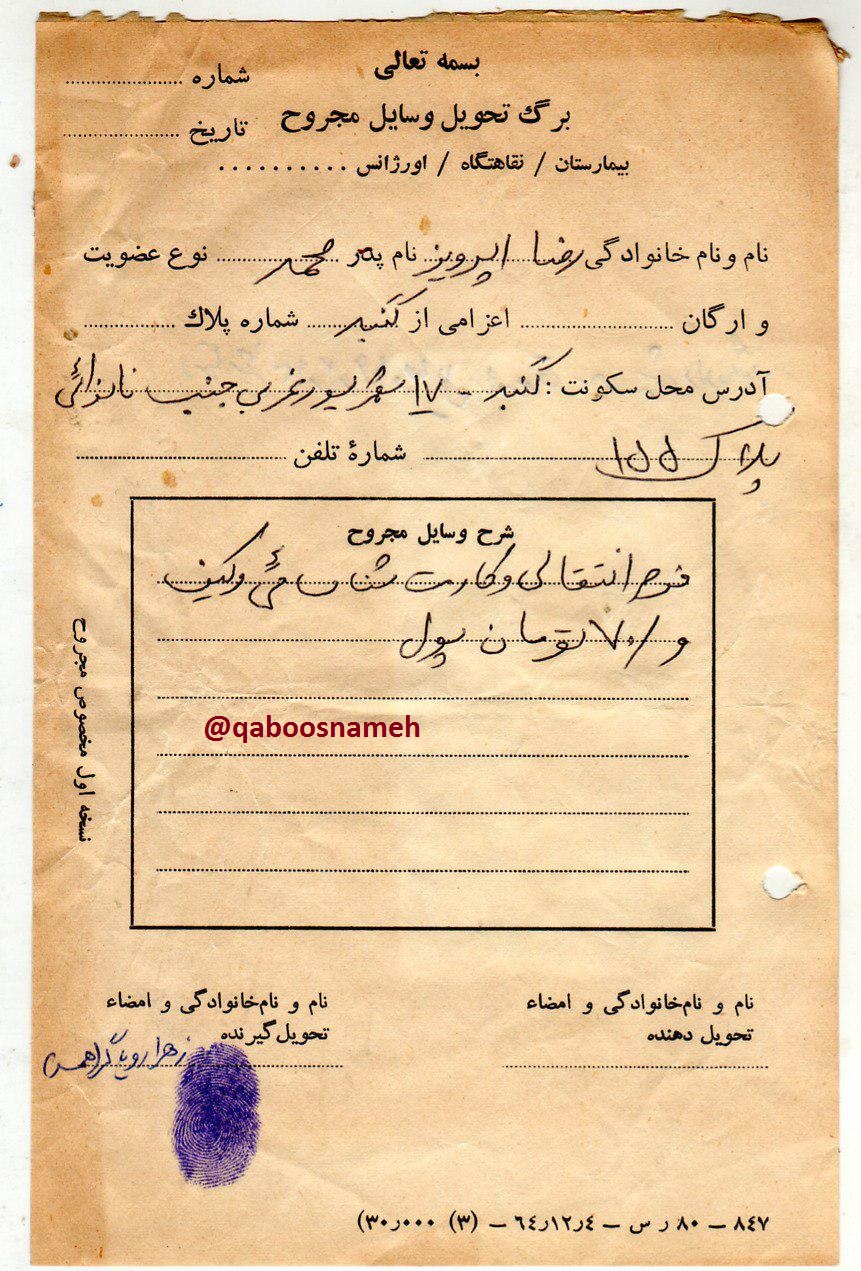 بسمه تعالی
شماره ....................
برگ تحویل وسایل مجروح
تاریخ ....................
بیمارستان / نقاهتگاه / اورژانس ..........
نام و نام خانوادگی رضا پرویز نام پدر محمد نوع عضویت
و ارگان .................... اعزامی از گنبد شماره پلاك ....................
آدرس محل سکونت : گنبد - ۱۷ شهریور غربی جنب نانوائی
پلاک ۱۵۵ .................... شمارهٔ تلفن ....................
شرح وسایل مجروح
فرم انتقالی و کارت شناسائی و کیف
و ۷۰/ تومان پول
@qaboosnameh
نسخه اول مخصوص مجروح
نام و نام‌خانوادگی و امضاء
تحویل دهنده
نام و نام‌خانوادگی و امضاء
تحویل‌گیرنده
زهرا
۸٤۷ – ۸۰ ر س – ٤ر۱۲ر٦٤ – (۳) ۳۰ر۰۰۰)